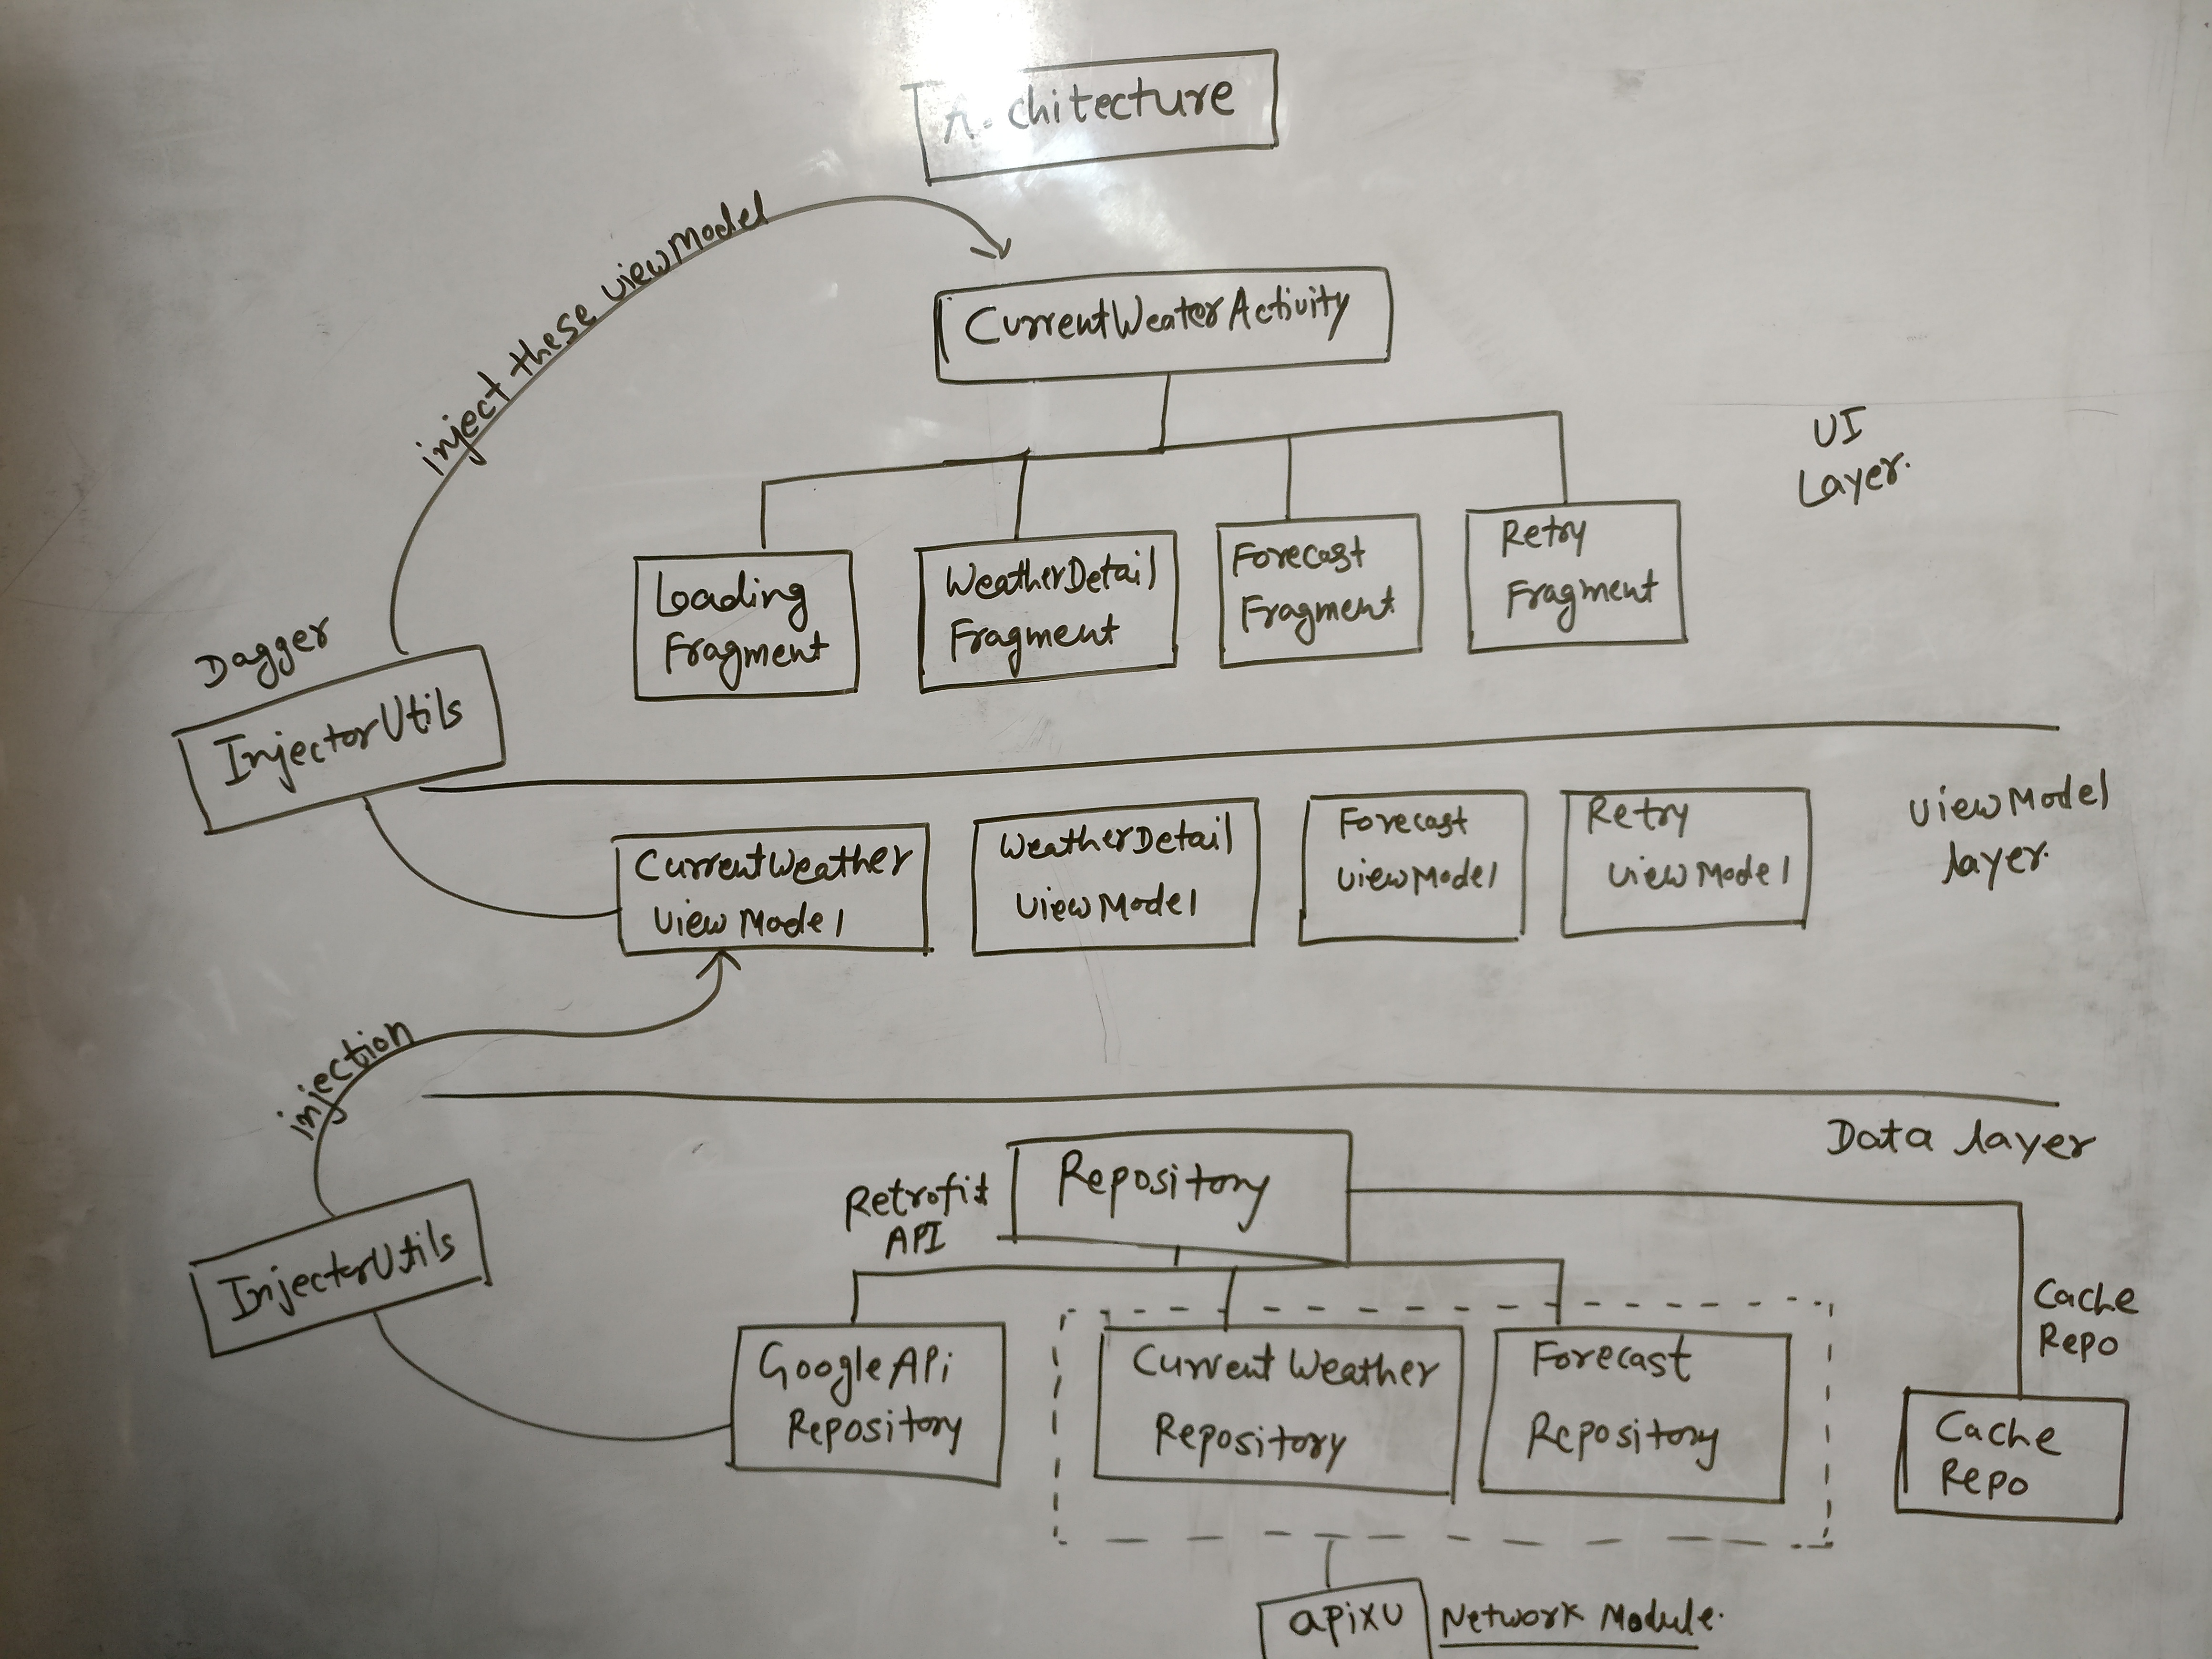 Architecture
inject these viewModel
CurrentWeaterActivity
UI
Layer.
Loading
Fragment
WeatherDetail
Fragment
Forecast
Fragment
Retry
Fragment
Dagger
InjectorUtils
CurrentWeather
viewModel
WeatherDetail
viewModel
Forecast
viewModel
Retry
viewModel
viewModel
layer.
injection
Data layer
Retrofit
API
Repository
InjectorUtils
Cache
Repo
GoogleAPi
Repository
Current Weather
Repository
Forecast
Repository
Cache
Repo
apixu
Network Module.